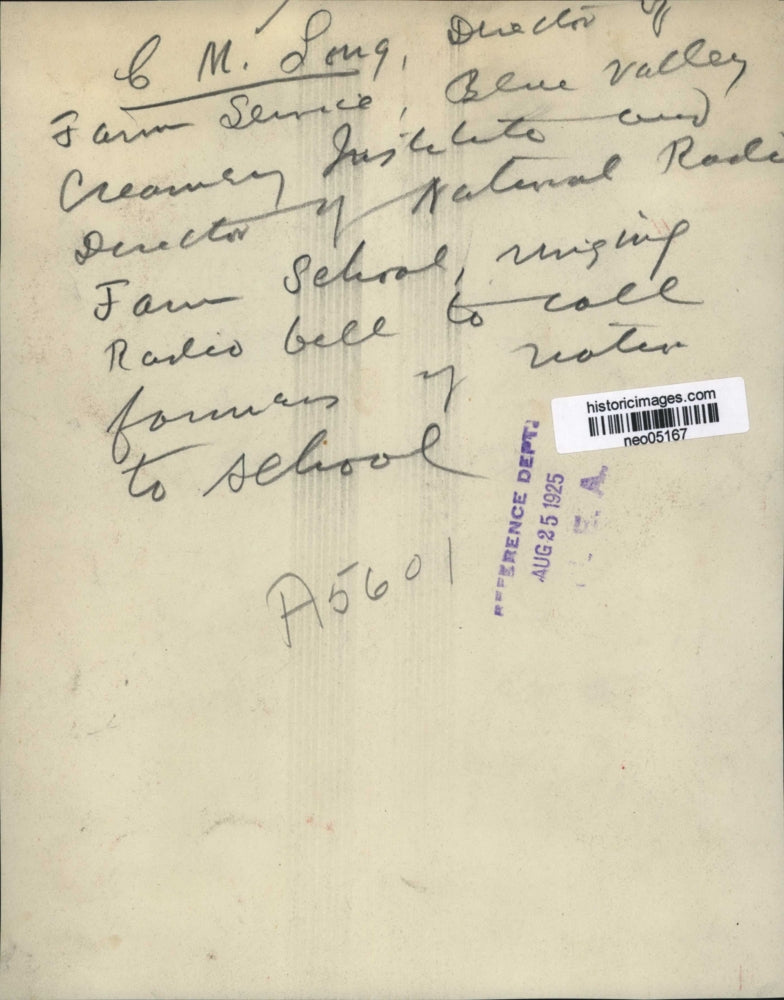 C M. Long, Director of
Farm Service, Blue Valley
Creamery Institute and
Director of National Radio
Farm School, ringing
Radio bell to call
farmers of nation
to school
historicimages.com
neo05167
REFERENCE DEPT.
AUG 25 1925
E. A.
A5601